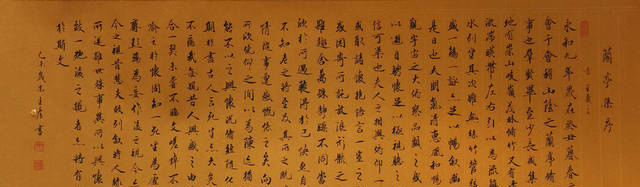 蘭亭集序
晉 王羲之
永和九年歲在癸丑暮春
會于會稽山陰之蘭亭脩
事也群賢畢至少長咸集
地有崇山峻嶺茂林脩竹又有
流激湍映帶左右引以為流觴
列坐其次雖無絲竹管弦
盛一觴一詠亦足以暢敘幽
是日也天朗氣清惠風和暢
觀宇宙之大俯察品類之盛
以遊目騁懷足以極視聽之
信可樂也夫人之相與俯仰一
或取諸懷抱悟言一室之
或因寄所託放浪形骸之
雖趣舍萬殊靜躁不同當
欣於所遇暫得於己快然自
不知老之將至及其所之既
情隨事遷感慨係之矣向
所欣俛仰之間以為陳迹猶
能不以之興懷況脩短隨化
期於盡古人云死生亦大矣
不痛哉每覽昔人興感之由
合一契未嘗不臨文嗟悼不
喻之於懷固知一死生為虛
齊彭殤為妄作後之視今亦
今之視昔悲夫故列敘時人錄
所述雖世殊事異所以興懷
致一也後之覽者亦將有
於斯文
歲末 書